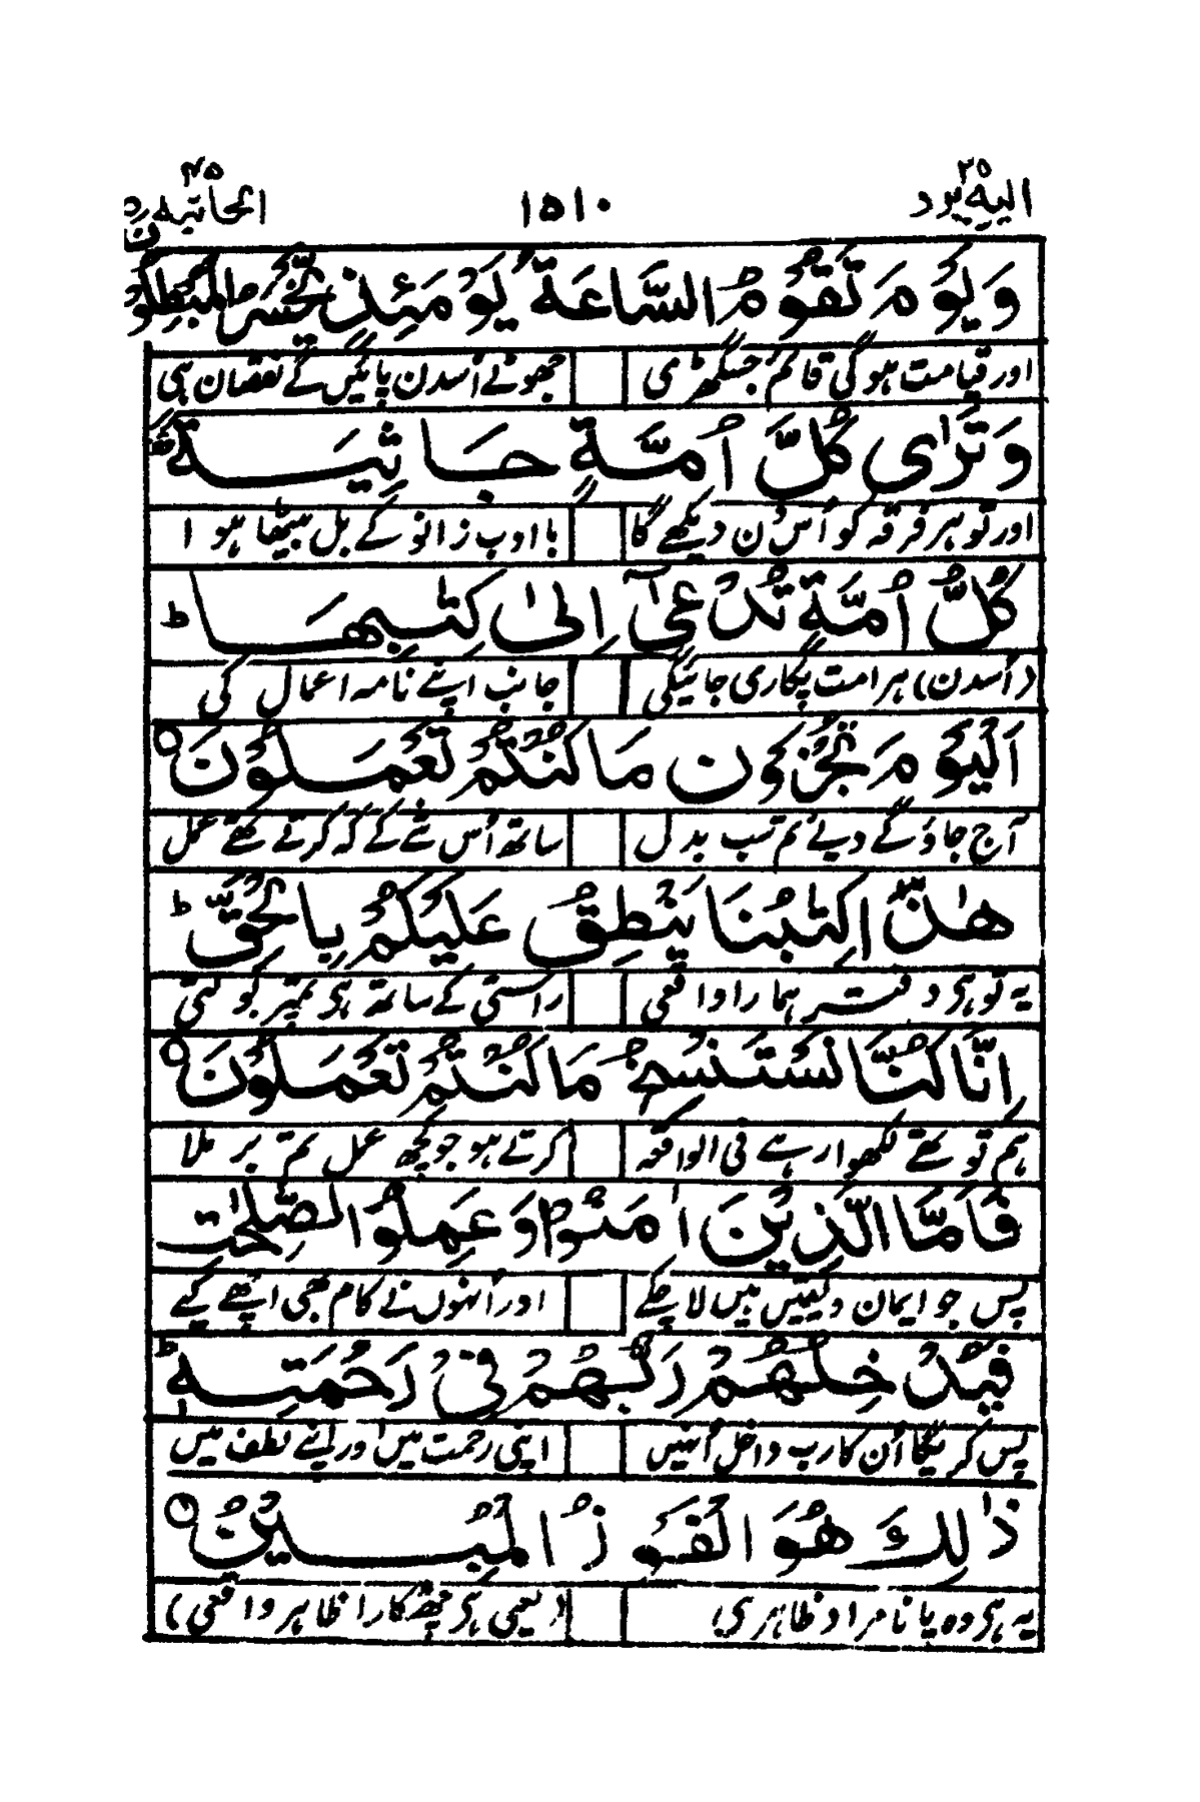 الیه یرد ۲۵ ۱۵۱۰ الجاثیه ۴۵
وَيَوْمَ تَقُوْمُ السَّاعَةُ يَوْمَئِذٍ يَّخْسَرُ الْمُبْطِلُوْنَ
اور قیامت ہوگی قائم جس گھڑی جھوٹے اُسدن پائیں گے نقصان ہی
وَتَرٰى كُلَّ اُمَّةٍ جَاثِيَةً
اور تو ہر فرقہ کو اُس دن دیکھے گا باادب زانو کے بل بیٹھا ہوا
كُلُّ اُمَّةٍ تُدْعٰٓى اِلٰى كِتٰبِهَا ط
(اُسدن) ہر امت پکاری جائیگی جانب اپنے نامہ اعمال کی
اَلْيَوْمَ تُجْزَوْنَ مَا كُنْتُمْ تَعْمَلُوْنَ ○
آج جاؤ گے دیے تم سب بدل ساتھ اُس شے کے کہ کرتے تھے عمل
هٰذَا كِتٰبُنَا يَنْطِقُ عَلَيْكُمْ بِالْحَقِّ ط
یہ تو ہی دفتر ہمارا واقعی راستی کے ساتھ ہی تمپر گو کتی
اِنَّا كُنَّا نَسْتَنْسِخُ مَا كُنْتُمْ تَعْمَلُوْنَ ○
ہم تو تھے لکھوا رہے فی الواقعہ کرتے ہو جو کچھ عمل تم بر ملا
فَاَمَّا الَّذِيْنَ اٰمَنُوْا وَعَمِلُوا الصّٰلِحٰتِ
پس جو ایمان و یقین میں لا چکے اور اُنہوں نے کام بھی اچھے کیے
فَيُدْخِلُهُمْ رَبُّهُمْ فِيْ رَحْمَتِهٖ ط
پس کریگا اُن کا رب داخل اُنہیں اپنی رحمت میں اور اپنے لطف میں
ذٰلِكَ هُوَ الْفَوْزُ الْمُبِيْنُ ○
یہ ہی وہ پانا مراد ظاہری (یعنی ہی چھٹکارا ظاہر واقعی)